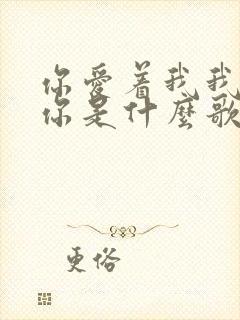 你爱着我我
你是什麽歌
更俗